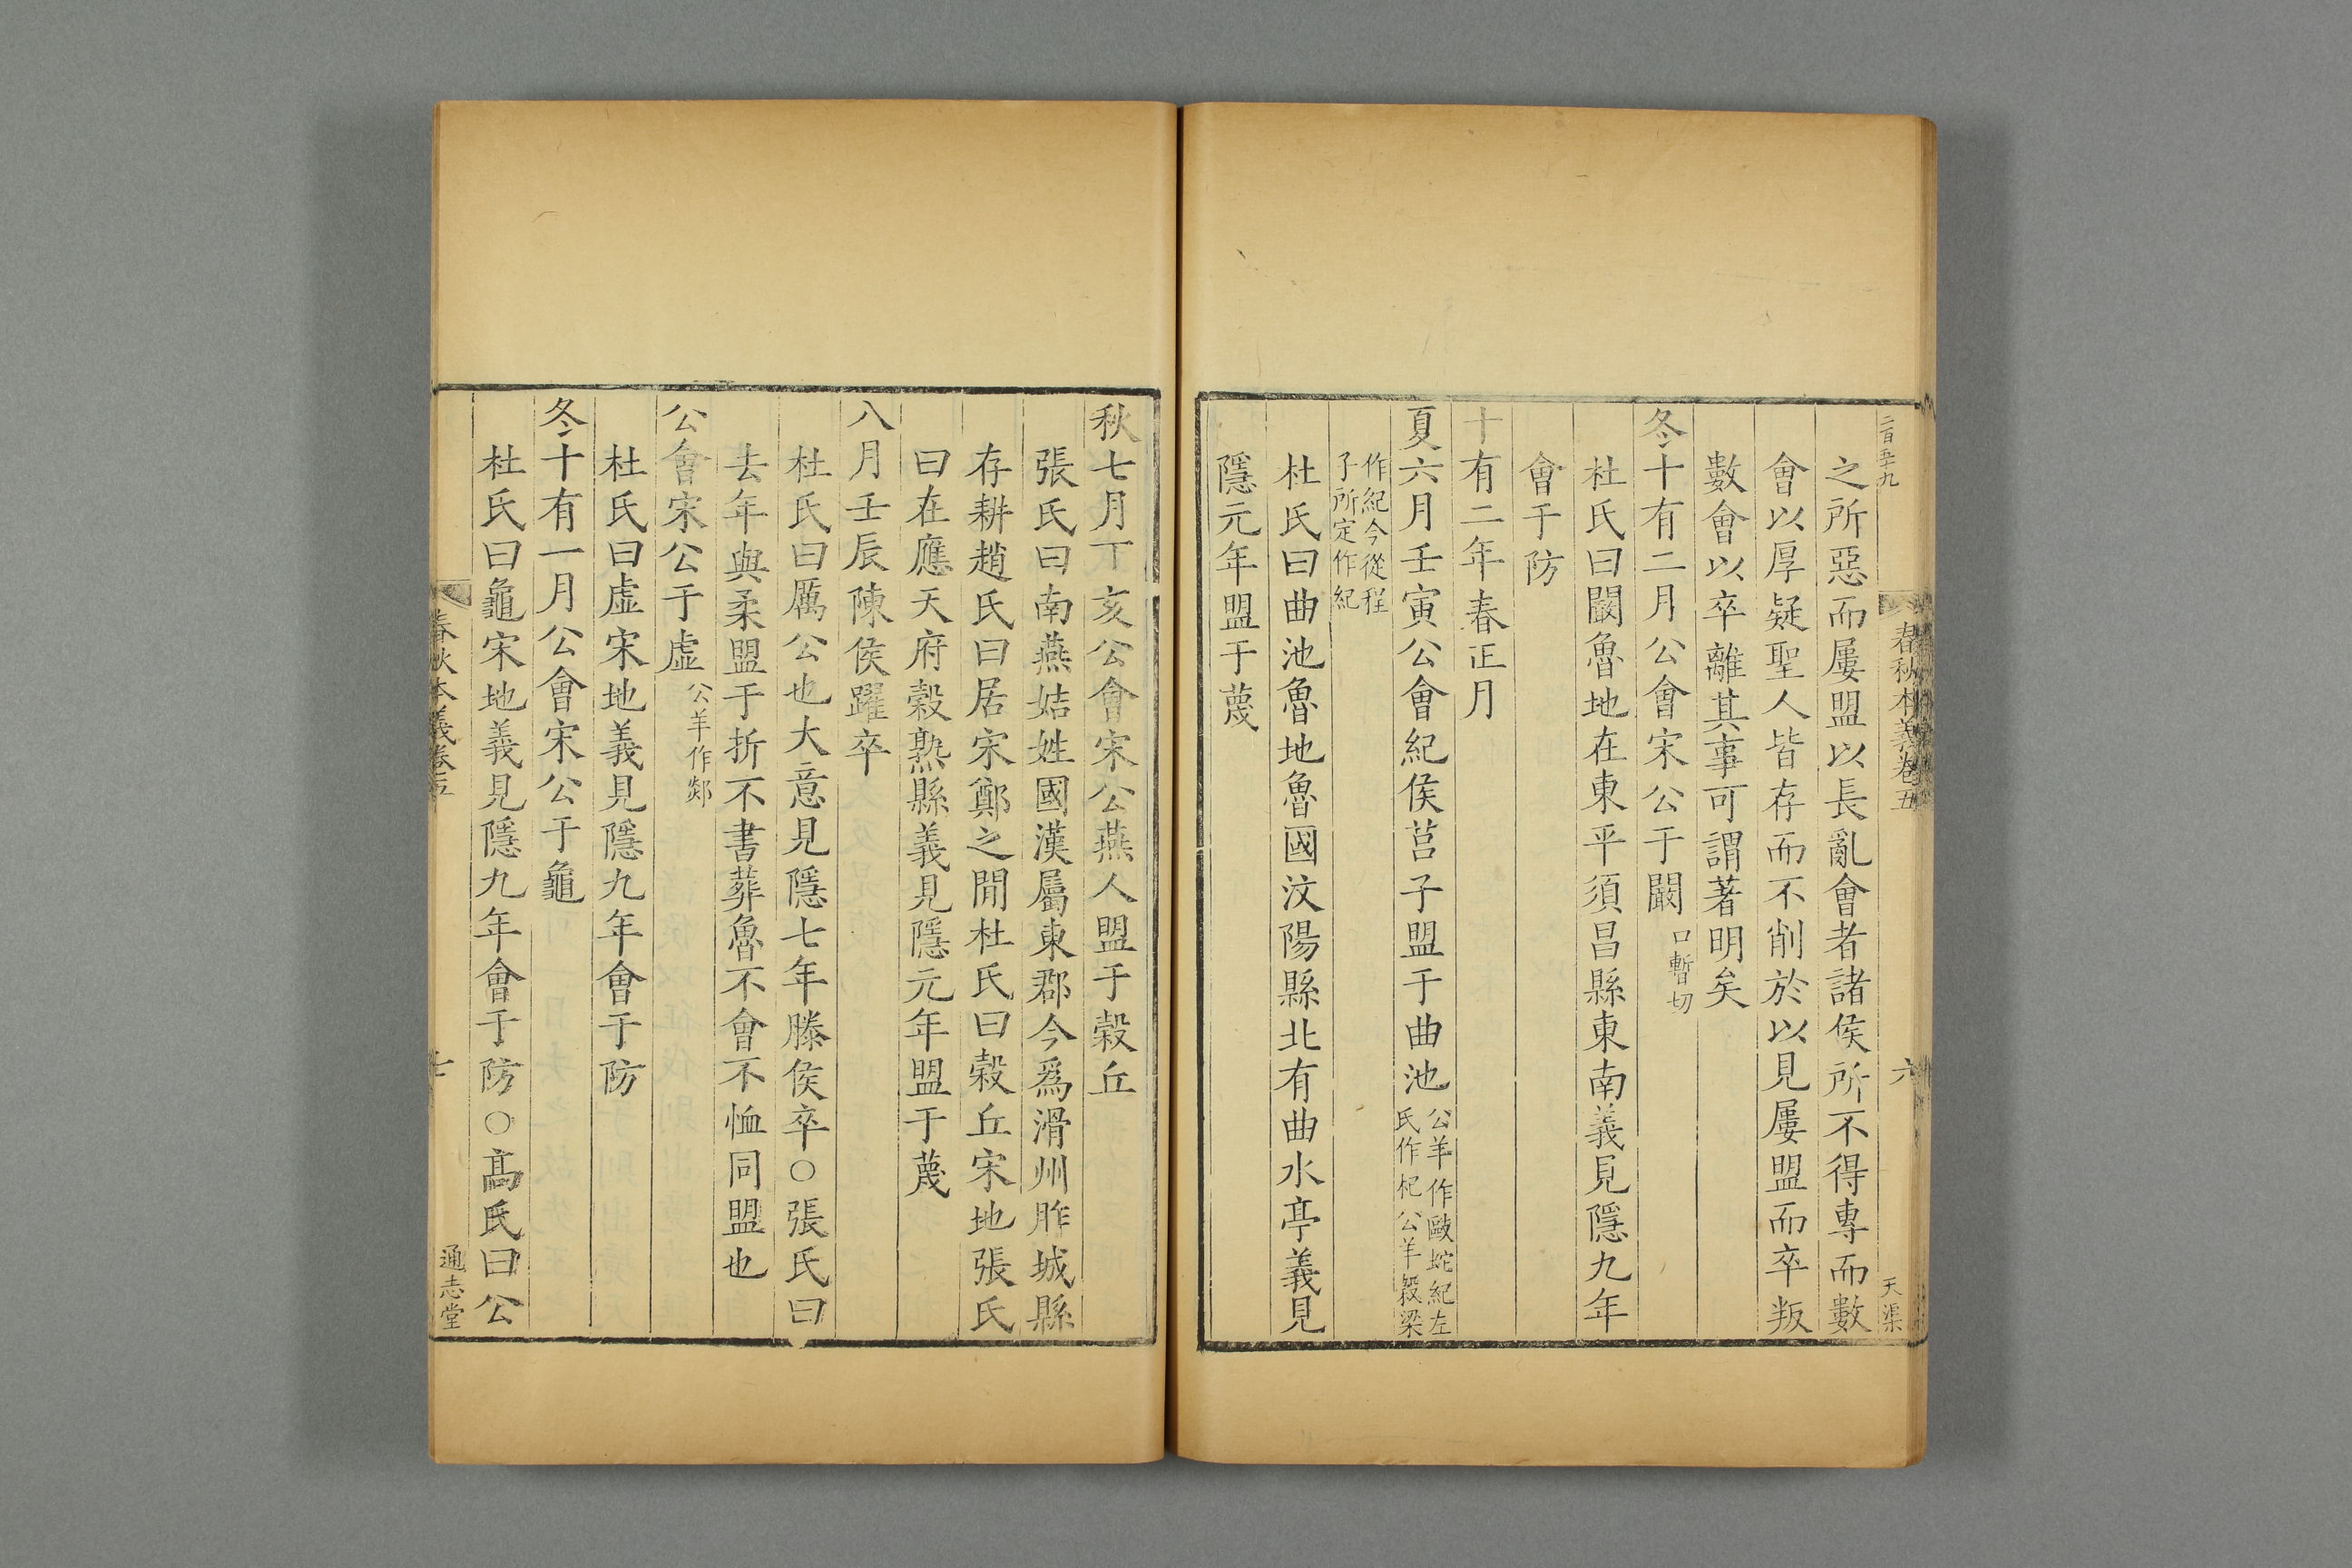 二百五十九
春秋本義卷五
六
天渠
之所惡而屢盟以長亂會者諸侯所不得專而數
會以厚疑聖人皆存而不削於以見屢盟而卒叛
數會以卒離其事可謂著明矣
冬十有二月公會宋公于闞口暫切
杜氏曰闞魯地在東平須昌縣東南義見隱九年
會于防
十有二年春正月
夏六月壬寅公會紀侯莒子盟于曲池公羊作毆蛇紀左氏作杞公羊穀梁
作紀今從程子所定作紀
杜氏曰曲池魯地魯國汶陽縣北有曲水亭義見
隱元年盟于蔑
秋七月丁亥公會宋公燕人盟于穀丘
張氏曰南燕姞姓國漢屬東郡今爲滑州胙城縣
存耕趙氏曰居宋鄭之閒杜氏曰穀丘宋地張氏
曰在應天府穀熟縣義見隱元年盟于蔑
八月壬辰陳侯躍卒
杜氏曰厲公也大意見隱七年滕侯卒○張氏曰
去年與柔盟于折不書葬魯不會不恤同盟也
公會宋公于虛公羊作郯
杜氏曰虛宋地義見隱九年會于防
冬十有一月公會宋公于龜
杜氏曰龜宋地義見隱九年會于防○高氏曰公
春秋本義卷五
七
通志堂